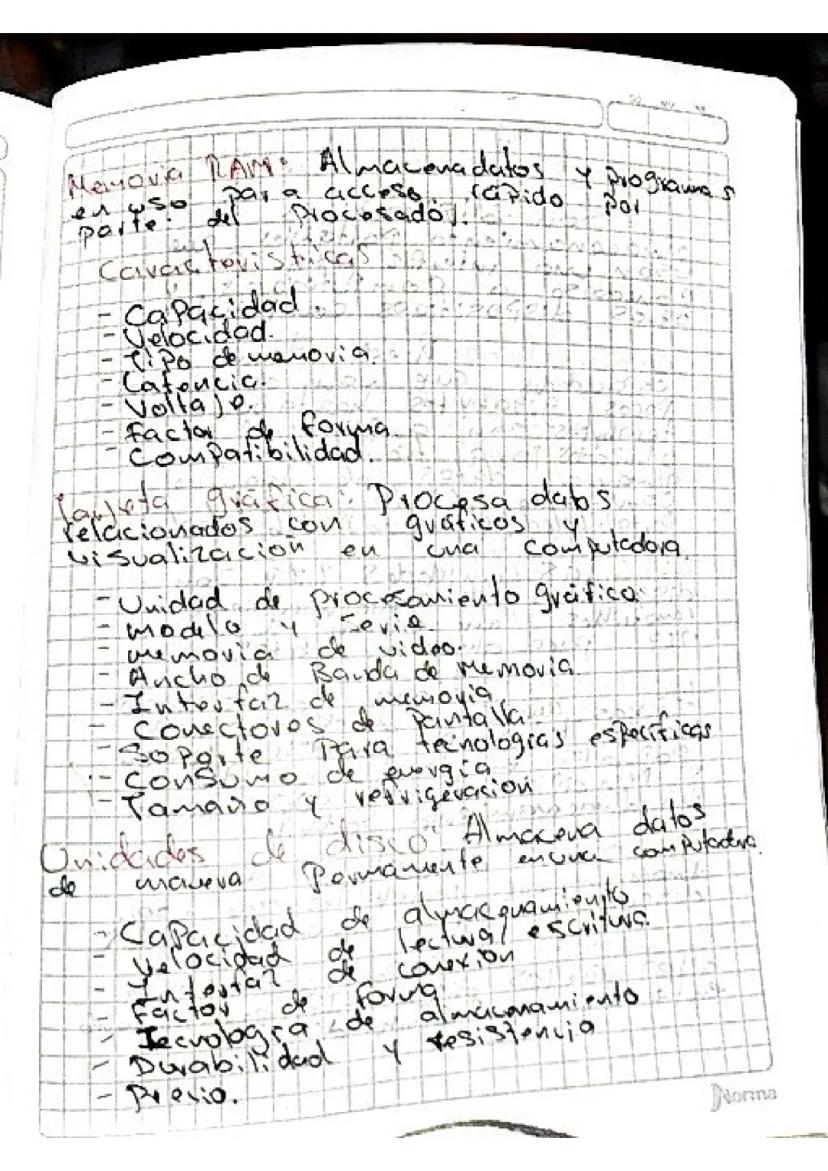 Memoria RAM: Almacena datos y programas
en uso para acceso rápido por
parte del procesador.
Características
- Capacidad.
- Velocidad.
- Tipo de memoria.
- Latencia.
- Voltaje.
- Factor de forma.
- Compatibilidad.
Tarjeta gráfica: Procesa datos
relacionados con gráficos y
visualización en una computadora.
- Unidad de procesamiento gráfico.
- modelo y serie
- memoria de video.
- Ancho de Banda de memoria.
- Interfaz de memoria
- Conectores de pantalla.
- Soporte para tecnologías específicas
- Consumo de energía
- Tamaño y refrigeración
Unidades de disco: Almacena datos
de manera permanente en una computadora.
- Capacidad de almacenamiento
- Velocidad de lectura/escritura.
- Interfaz de conexión
- Factor de forma
- Tecnología de almacenamiento
- Durabilidad y resistencia
- Precio.
Norma